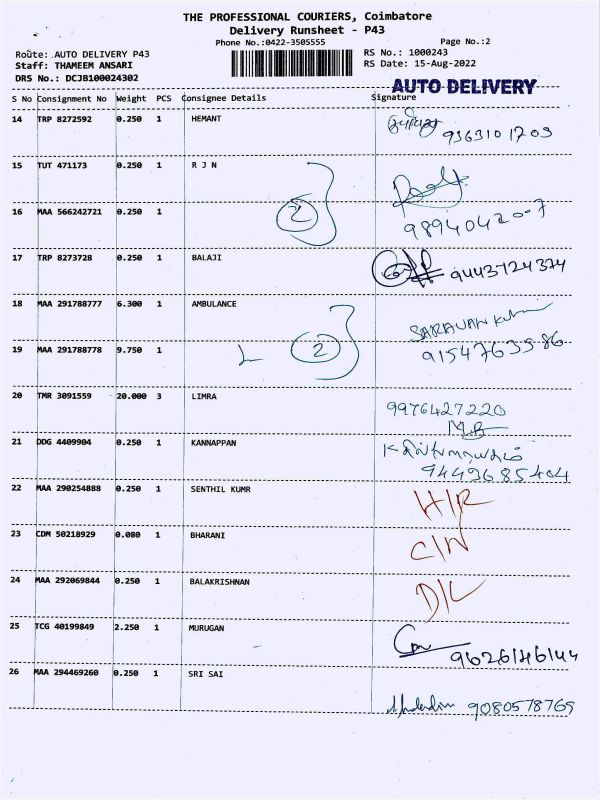 THE PROFESSIONAL COURIERS, Coimbatore
Delivery Runsheet - P43
Phone No.:0422-3505555 Page No.:2
Route: AUTO DELIVERY P43 RS No.: 1000243
Staff: THAMEEM ANSARI RS Date: 15-Aug-2022
DRS No.: DCJB100024302
AUTO DELIVERY
S No Consignment No Weight PCS Consignee Details Signature
14 TRP 8272592 0.250 1 HEMANT
9363101709
15 TUT 471173 0.250 1 R J N
2
16 MAA 566242721 0.250 1
9894042007
17 TRP 8273728 0.250 1 BALAJI
9443724374
18 MAA 291788777 6.300 1 AMBULANCE
SARAVAN Kumar
19 MAA 291788778 9.750 1
2 9154763586
20 TMR 3091559 20.000 3 LIMRA
9976427220
M.B
21 DDG 4409904 0.250 1 KANNAPPAN
9449685404
22 MAA 290254888 0.250 1 SENTHIL KUMR
H/R
23 CDM 50218929 0.080 1 BHARANI
C/N
24 MAA 292069844 0.250 1 BALAKRISHNAN
D/L
25 TCG 40199849 2.250 1 MURUGAN
9626146144
26 MAA 294469260 0.250 1 SRI SAI
9080578765